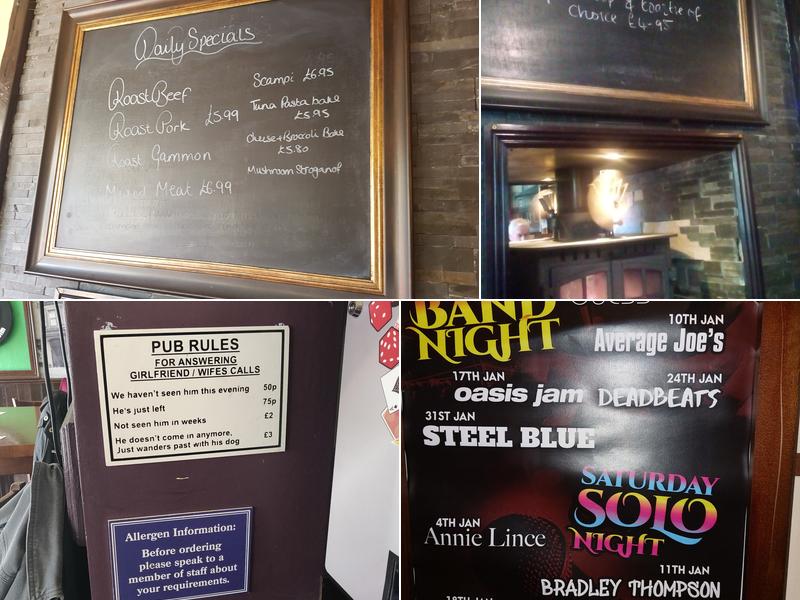 Daily Specials
Roast Beef
Roast Pork £5.99
Roast Gammon
Mixed Meat £6.99
Scampi £6.95
Tuna Pasta bake
£5.95
Cheese + Broccoli Bake
£5.80
Mushroom Stroganof
Choice £4-95
PUB RULES
FOR ANSWERING
GIRLFRIEND / WIFES CALLS
We haven't seen him this evening 50p
He's just left 75p
Not seen him in weeks £2
He doesn't come in anymore, £3
Just wanders past with his dog
Allergen Information:
Before ordering
please speak to a
member of staff about
your requirements.
BAND
NIGHT
10TH JAN
Average Joe's
17TH JAN
oasis jam
24TH JAN
DEADBEATS
31ST JAN
STEEL BLUE
SATURDAY
SOLO
NIGHT
4TH JAN
Annie Lince
11TH JAN
BRADLEY THOMPSON
18TH JAN